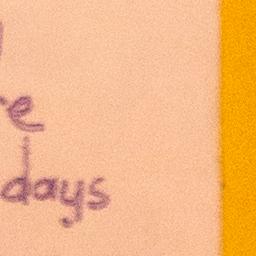 re
days